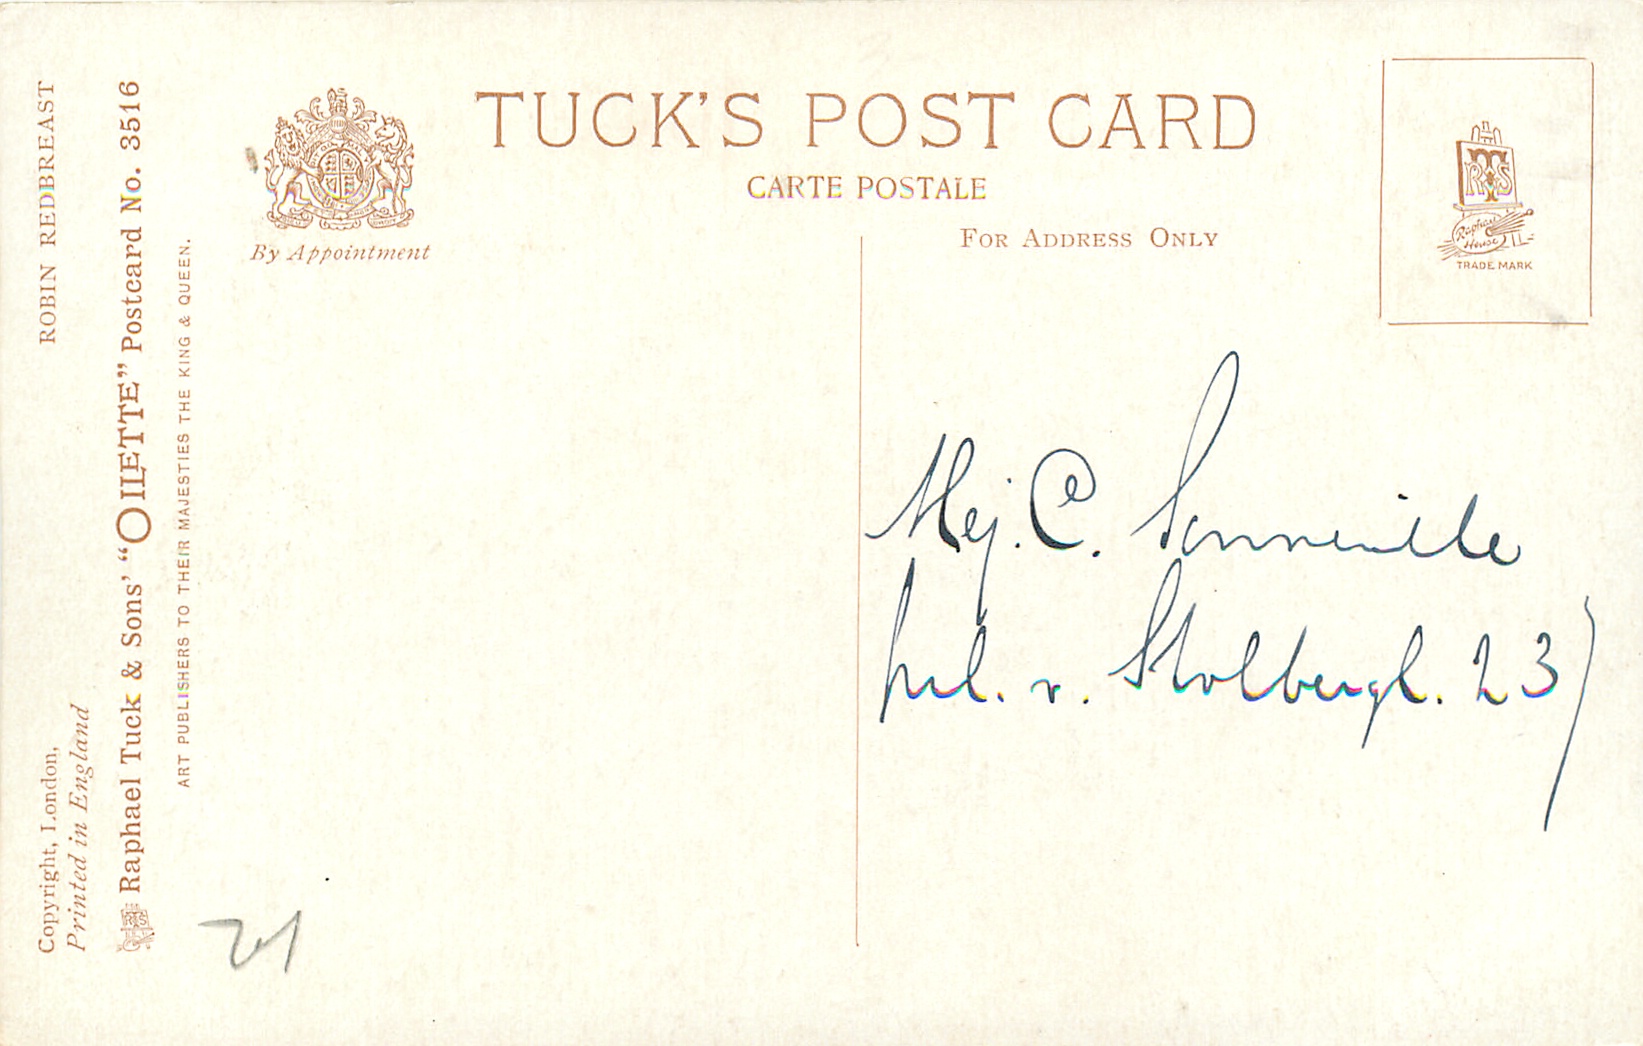 TUCK'S POST CARD
CARTE POSTALE
FOR ADDRESS ONLY
By Appointment
RTS
Raphael House
TRADE MARK
ROBIN REDBREAST
Copyright, London,
Printed in England
Raphael Tuck & Sons' "OILETTE" Postcard No. 3516
ART PUBLISHERS TO THEIR MAJESTIES THE KING & QUEEN.
Mej. C. Sonneville
v. Stolbergl. 237
21